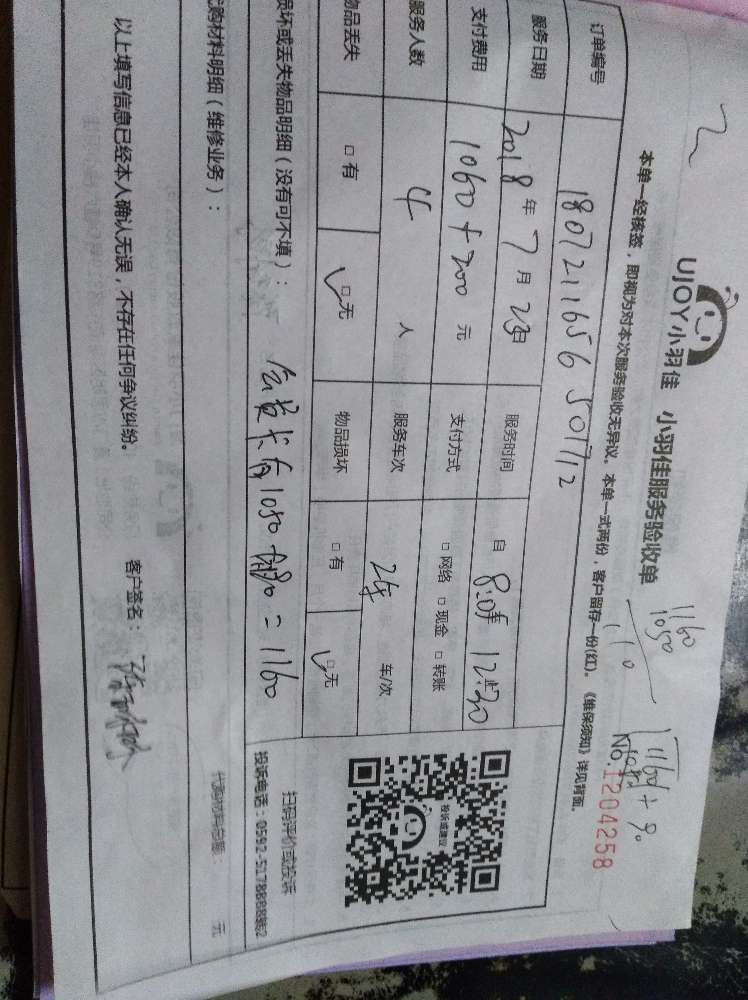 UJOY小羽佳 小羽佳服务验收单
1160
1050
110
No.1204258
本单一经核签，即视为对本次服务验收无异议。本单一式两份，客户留存一份(红)。《维保须知》详见背面。
订单编号 180721165650 17712
服务日期 2018年7月23日 服务时间 自 8:05 止 12:30
支付费用 1060+200 元 支付方式 □网络 □现金 □转账
服务人数 4 人 服务车次 2车 车/次
物品丢失 □有 □无 物品损坏 □有 □无
损坏或丢失物品明细（没有可不填）：
1050 = 1160
投诉或建议
扫码评价或投诉
投诉电话：0592-5178888转2
代购材料明细（维修业务）：
代购材料总额： 元
以上填写信息已经本人确认无误，不存在任何争议纠纷。 客户签名：